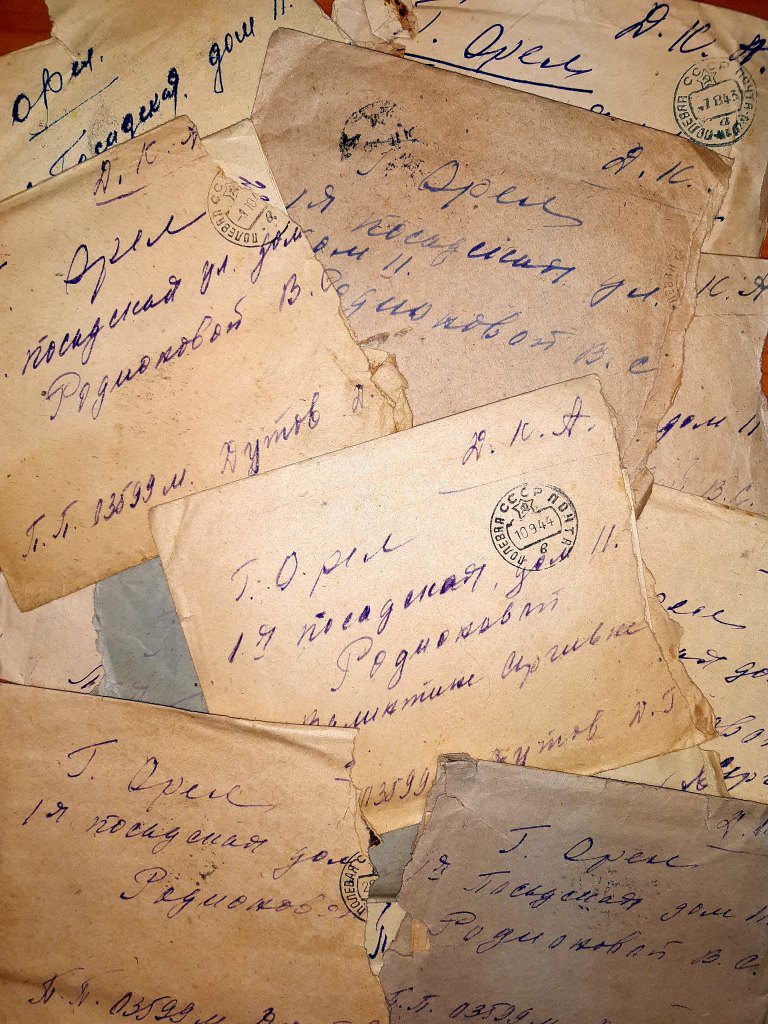 Орел.
Посадская, дом 11.
Д. К. А.
Г. Орел
ПОЛЕВАЯ ПОЧТА
СССР
Д. К. А
Орел
Посадская ул. дом
Родионовой В. С.
П. П. 03599 м. Дутов Д.
Д. К.
Г. Орел
1я Посадская ул.
дом 11.
Родионовой В. С
К. А
дом 11
В. С.
Д. К. А.
СССР ПОЧТА
ПОЛЕВАЯ
10 9 44
в
Г. Орел
1я Посадская, дом 11.
Родионовой
Валинтине Сргивне
03599 Дутов Д. Г
Г. Орел
1я Посадская дом
Родионовой
ПОЛЕВАЯ
П. П. 03599 м
Г. Орел
1я Посадская дом 11
Родионовой В. С.
П. П. 03599 м